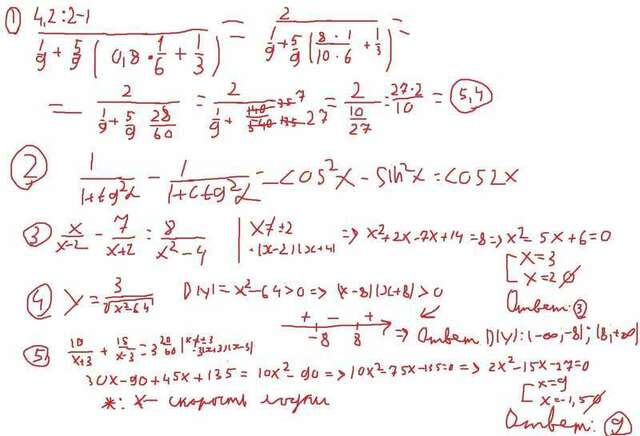 ① (4,2:2-1)/(1/9 + 5/9 (0,8 · 1/6 + 1/3)) = 2/(1/9 + 5/9 (8·1/10·6 + 1/3)) =
= 2/(1/9 + 5/9 28/60) = 2/(1/9 + 140 35 7/540 135 27) = 2/(10/27) = 27·2/10 = 5,4
② 1/(1+tg²α) - 1/(1+ctg²α) = cos²x - sin²x = cos2x
③ x/(x-2) - 7/(x+2) = 8/(x²-4) | x≠±2 ·(x-2)(x+4) => x²+2x-7x+14=8 => x²-5x+6=0
[x=3
x=2 ∅
Ответ: ③
④ y = 3/√(x²-64) D(y)= x²-64>0 => (x-8)(x+8)>0
+ - +
-8 8 => Ответ D(y): (-∞,-8); (8,+∞)
⑤ 10/(x+3) + 15/(x-3) = 3 20/60 | x≠±3 ·3(x+3)(x-3)
30x-90+45x+135=10x²-90 => 10x²-75x-135=0 => 2x²-15x-27=0
[x=9
x=-1,5 ∅
*: x - скорость лодки
Ответ: ⑨